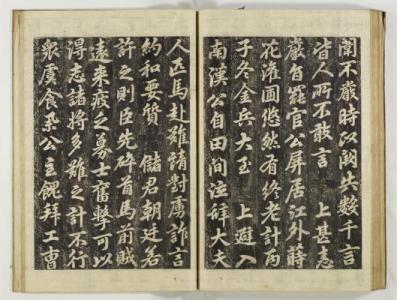 闈不嚴時政闕共數千言
皆人所不敢言 上甚恚
嚴旨罷官公屏居江外蒔
花灌園悠然有終老計丙
子冬金兵大至 上避入
南漢公自田間泣辭大夫
人匹馬赴難請對虜詐言
約和要質 儲君朝廷若
許之則臣先碎首馬前賊
遠來疲乏募士奮擊可以
得志諸將多難之計不行
衆虞食公主餽拜工曹